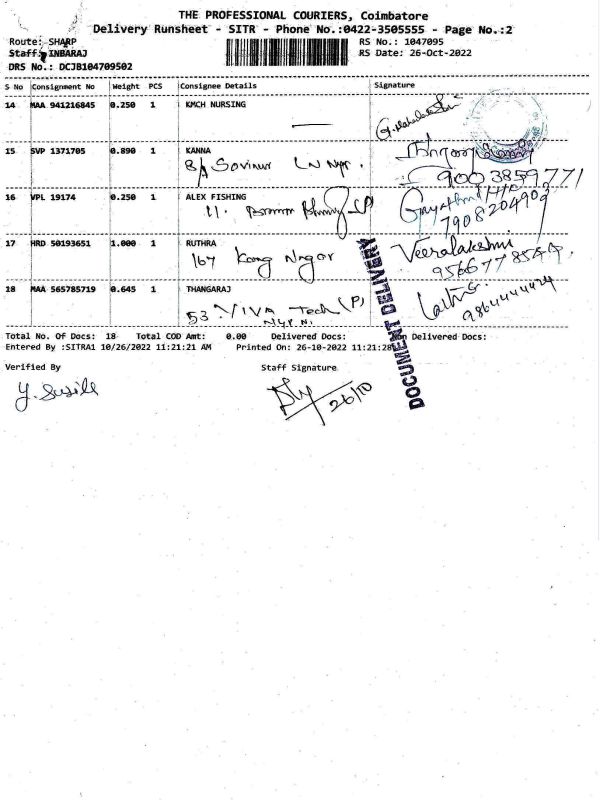 THE PROFESSIONAL COURIERS, Coimbatore
Delivery Runsheet - SITR - Phone No.:0422-3505555 - Page No.:2
Route: SHARP
RS No.: 1047095
Staff: INBARAJ
RS Date: 26-Oct-2022
DRS No.: DCJB104709502
S No Consignment No Weight PCS Consignee Details Signature
14 MAA 941216845 0.250 1 KMCH NURSING
G. Mahalakshmi
15 SVP 1371705 0.890 1 KANNA
9003859771
16 VPL 19174 0.250 1 ALEX FISHING
11.
7908204903
17 HRD 50193651 1.000 1 RUTHRA Veeralakshmi
167 Nagar
18 MAA 565785719 0.645 1 THANGARAJ
53 VIVA Tech (P)
9864444424
Total No. Of Docs: 18 Total COD Amt: 0.00 Delivered Docs: Non Delivered Docs:
Entered By :SITRA1 10/26/2022 11:21:21 AM Printed On: 26-10-2022 11:21:28
DOCUMENT DELIVERY
Verified By Staff Signature
Y. Susila
26/10